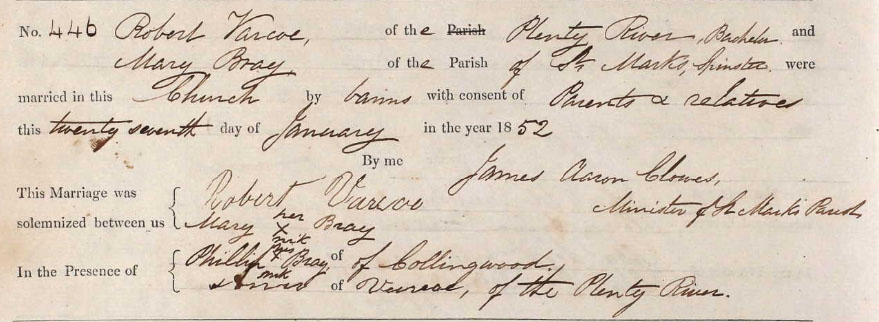 No. 446 Robert Varcoe, of the Parish Plenty River, Bachelor and
Mary Bray of the Parish of St. Marks, Spinster were
married in this Church by banns with consent of Parents & relatives
this twenty seventh day of January in the year 1852
By me James Aaron Clowes,
Minister of St Marks Parish
This Marriage was
solemnized between us
Robert Varcoe
Mary her x mrk Bray
In the Presence of
Phillip his x mrk Bray of of Collingwood
of Varcoe, of the Plenty River.